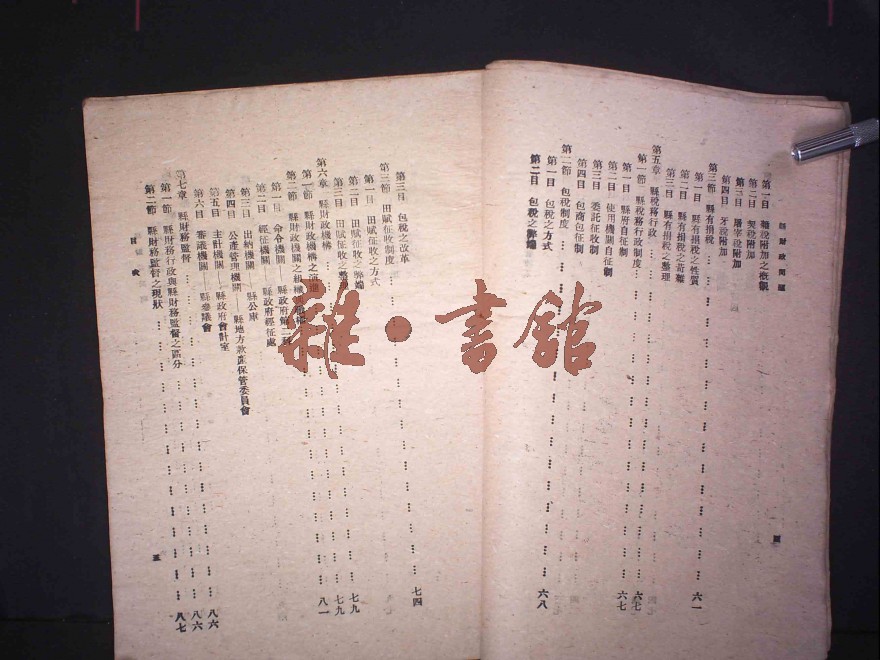 縣財政問題
第一目 雜稅附加之概觀
第二目 契稅附加
第三目 屠宰稅附加
第四目 牙稅附加
第三節 縣有捐稅 六一
第一目 縣有捐稅之性質
第二目 縣有捐稅之苛雜
第三目 縣有捐稅之整理
第五章 縣稅務行政
第一節 縣稅務行政制度 六七
第一目 縣府自征制 六七
第二目 使用機關自征制
第三目 委託征收制
第四目 包商包征制
第二節 包稅制度
第一目 包稅之方式 六八
第二目 包稅之弊端
第三目 包稅之改革 七四
第三節 田賦征收制度
第一目 田賦征收之方式
第二目 田賦征收之弊端 七九
第三目 田賦征收之整理 七九
第六章 縣財政機構 八一
第一節 縣財政機構之演進
第二節 縣財政機關之組織
第一目 命令機關——縣政府第二科
第二目 經征機關——縣政府經征處
第三目 出納機關——縣公庫
第四目 公產管理機關——縣地方款產保管委員會
第五目 主計機關——縣政府會計室
第六目 審議機關——縣參議會 八六
第七章 縣財務監督 八六
第一節 縣財務行政與縣財務監督之區分 八七
第二節 縣財務監督之現狀
目次
三
雜·書館